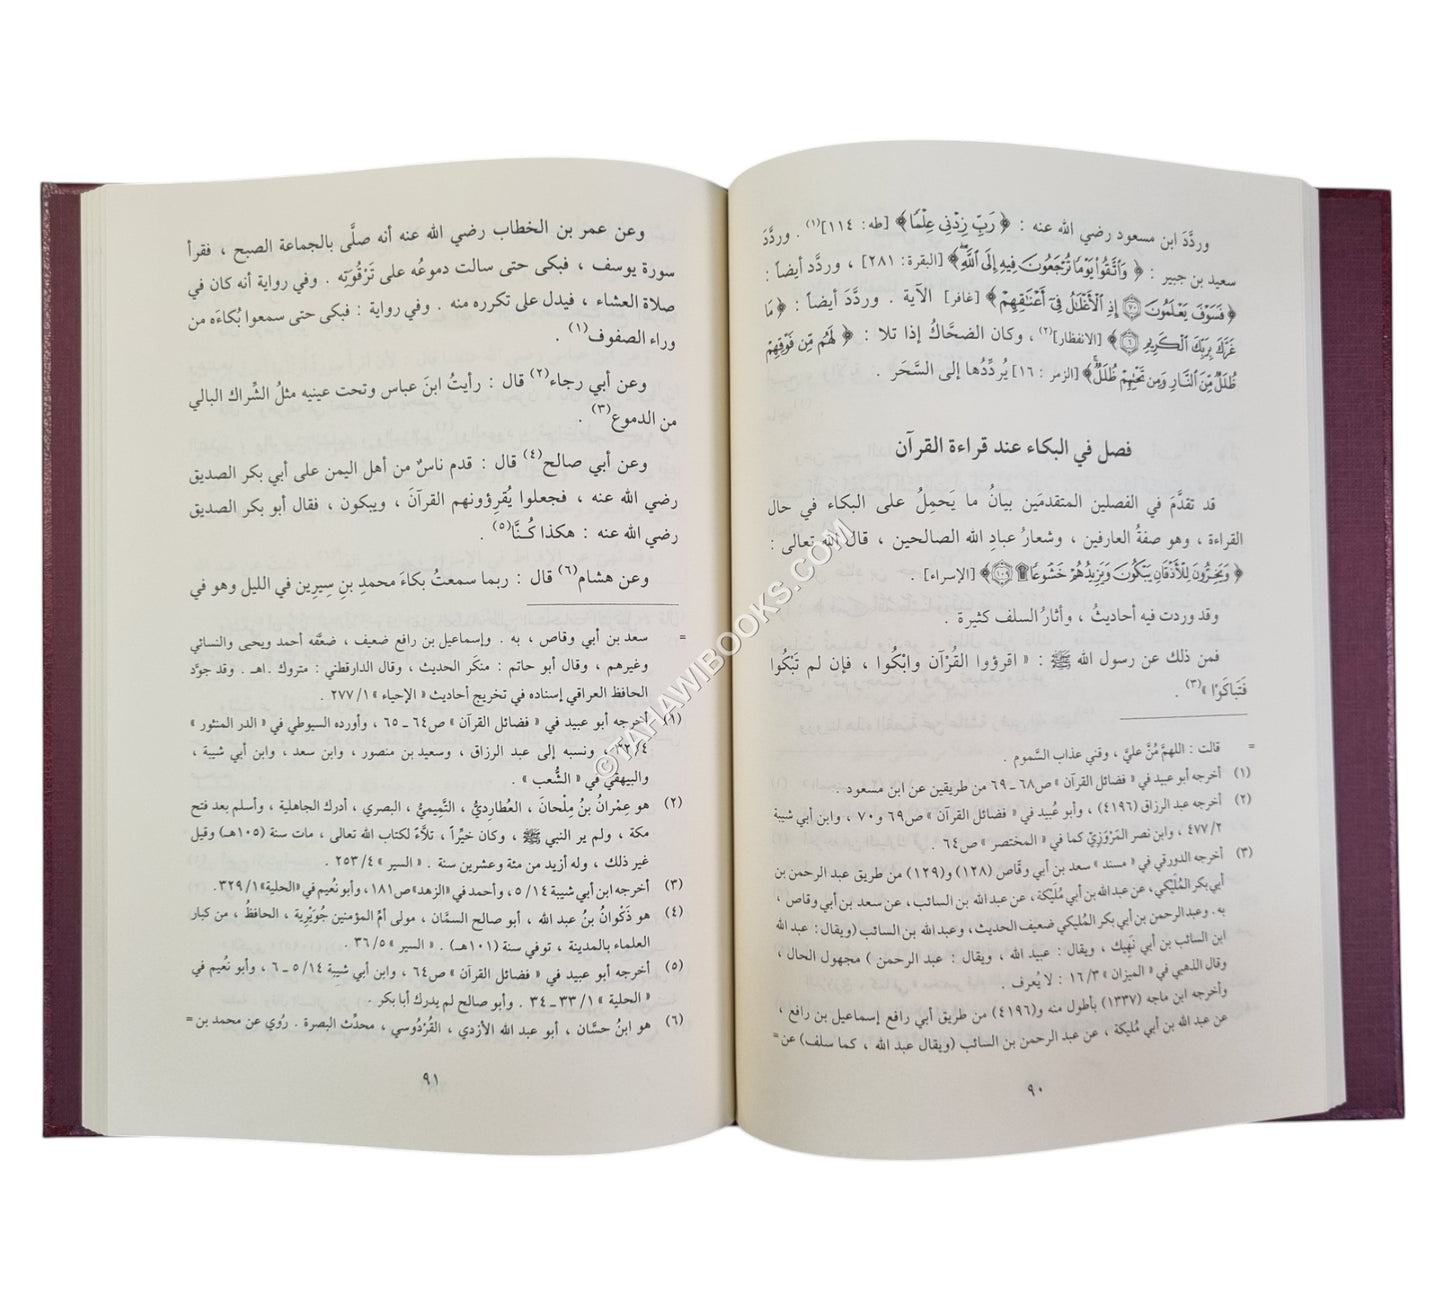 وردَّدَ ابن مسعود رضي الله عنه : ﴿ رَبِّ زِدْنِي عِلْمًا﴾ [طه: ١١٤](١) . وردَّدَ
سعيد بن جبير : ﴿ وَاتَّقُوا يَوْمًا تُرْجَعُونَ فِيهِ إِلَى اللَّهِ﴾ [البقرة: ٢٨١] ، وردَّد أيضاً :
﴿ فَسَوْفَ يَعْلَمُونَ ۝٧٠ إِذِ الْأَغْلَالُ فِي أَعْنَاقِهِمْ ﴾ [غافر] الآية . وردَّدَ أيضاً : ﴿ مَا
غَرَّكَ بِرَبِّكَ الْكَرِيمِ ۝٦﴾ [الانفطار](٢) ، وكان الضحَّاكُ إذا تلا : ﴿ لَهُم مِّن فَوْقِهِمْ
ظُلَلٌ مِّنَ النَّارِ وَمِن تَحْتِهِمْ ظُلَلٌ﴾ [الزمر : ١٦] يُردِّدُها إلى السَّحَر .
فصل في البكاء عند قراءة القرآن
قد تقدَّمَ في الفصلين المتقدمَين بيانُ ما يَحمِلُ على البكاء في حال
القراءة ، وهو صفةُ العارفين ، وشعارُ عبادِ الله الصالحين ، قال الله تعالى :
﴿ وَيَخِرُّونَ لِلْأَذْقَانِ يَبْكُونَ وَيَزِيدُهُمْ خُشُوعًا ۩ ۝١٠٩﴾ [الإسراء] .
وقد وردت فيه أحاديثُ ، وآثارُ السلف كثيرة .
فمن ذلك عن رسول الله ﷺ : « اقرؤوا القُرْآن وابْكُوا ، فإن لم تَبْكُوا
فَتَباكَوْا »(٣) .
= قالت : اللهمَّ مُنَّ عليَّ ، وقني عذاب السَّموم .
(١) أخرجه أبو عبيد في « فضائل القرآن » ص٦٨ ـ ٦٩ من طريقين عن ابن مسعود .
(٢) أخرجه عبد الرزاق (٤١٩٦) ، وأبو عُبيد في « فضائل القرآن » ص٦٩ و٧٠ ، وابن أبي شيبة
٤٧٧/٢ ، وابن نصر المَرْوَزِيّ كما في « المختصر » ص٦٤ .
(٣) أخرجه الدورقي في « مسند » سعد بن أبي وقَّاص (١٢٨) و(١٢٩) من طريق عبد الرحمن بن
أبي بكر المُلَيْكي، عن عبدالله بن أبي مُلَيْكة، عن عبدالله بن السائب ، عن سعد بن أبي وقاص ،
به . وعبدالرحمن بن أبي بكر المُليكي ضعيف الحديث، وعبدالله بن السائب (ويقال : عبدالله
ابن السائب بن أبي نَهيك ، ويقال : عبيد الله ، ويقال : عبد الرحمن ) مجهول الحال ،
وقال الذهبي في « الميزان » ١٦/٣ : لا يُعرف .
وأخرجه ابن ماجه (١٣٣٧) بأطول منه و(٤١٩٦) من طريق أبي رافع إسماعيل بن رافع ،
عن عبدالله بن أبي مُليكة ، عن عبد الرحمن بن السائب (ويقال عبد الله ، كما سلف) عن =
٩٠
وعن عمر بن الخطاب رضي الله عنه أنه صلَّى بالجماعة الصبح ، فقرأ
سورة يوسف ، فبكى حتى سالت دموعُه على تَرْقُوَتِه . وفي رواية أنه كان في
صلاة العشاء ، فيدل على تكرره منه . وفي رواية : فبكى حتى سمعوا بُكاءَه من
وراء الصفوف(١) .
وعن أبي رجاء(٢) قال : رأيتُ ابنَ عباس وتحت عينيه مثلُ الشِّراك البالي
من الدموع(٣) .
وعن أبي صالح(٤) قال : قدم ناسٌ من أهل اليمن على أبي بكر الصديق
رضي الله عنه ، فجعلوا يُقرِؤونهم القرآنَ ، ويبكون ، فقال أبو بكر الصديق
رضي الله عنه : هكذا كُنَّا(٥) .
وعن هشام(٦) قال : ربما سمعتُ بكاءَ محمدِ بنِ سِيرِين في الليل وهو في
= سعد بن أبي وقاص ، به . وإسماعيل بن رافع ضعيف ، ضعَّفه أحمد ويحيى والنسائي
وغيرهم ، وقال أبو حاتم : منكَر الحديث ، وقال الدارقطني : متروك .اهـ. وقد جوَّد
الحافظ العراقي إسناده في تخريج أحاديث « الإحياء » ٢٧٧/١ .
(١) أخرجه أبو عبيد في « فضائل القرآن » ص٦٤ ـ ٦٥ ، وأورده السيوطي في « الدر المنثور »
ونسبه إلى عبد الرزاق ، وسعيد بن منصور ، وابن سعد ، وابن أبي شيبة ،
والبيهقي في « الشُّعب » .
(٢) هو عِمْرانُ بنُ مِلْحانَ ، العُطارديُّ ، التَّمِيميُّ ، البصري ، أدرك الجاهلية ، وأسلم بعد فتح
مكة ، ولم ير النبي ﷺ ، وكان خيِّراً ، تلاَّءً لكتاب الله تعالى ، مات سنة (١٠٥هـ) وقيل
غير ذلك ، وله أزيد من مئة وعشرين سنة . « السير » ٢٥٣/٤ .
(٣) أخرجه ابن أبي شيبة ٥/١٤ ، وأحمد في «الزهد» ص١٨١، وأبو نُعيم في «الحلية» ٣٢٩/١.
(٤) هو ذَكْوانُ بنُ عبد الله ، أبو صالح السمَّان ، مولى أمِّ المؤمنين جُوَيْرِية ، الحافظُ ، من كبار
العلماء بالمدينة ، توفي سنة (١٠١هـ) . « السير » ٣٦/٥ .
(٥) أخرجه أبو عبيد في « فضائل القرآن » ص٦٤ ، وابن أبي شيبة ٥/١٤ ـ ٦ ، وأبو نُعيم في
« الحلية » ٣٣/١ ـ ٣٤ . وأبو صالح لم يدرك أبا بكر .
(٦) هو ابنُ حسَّان ، أبو عبد الله الأزدي ، القُرْدُوسي ، محدِّث البصرة . رُوي عن محمد بن =
٩١
©TAHAWIBOOKS.COM